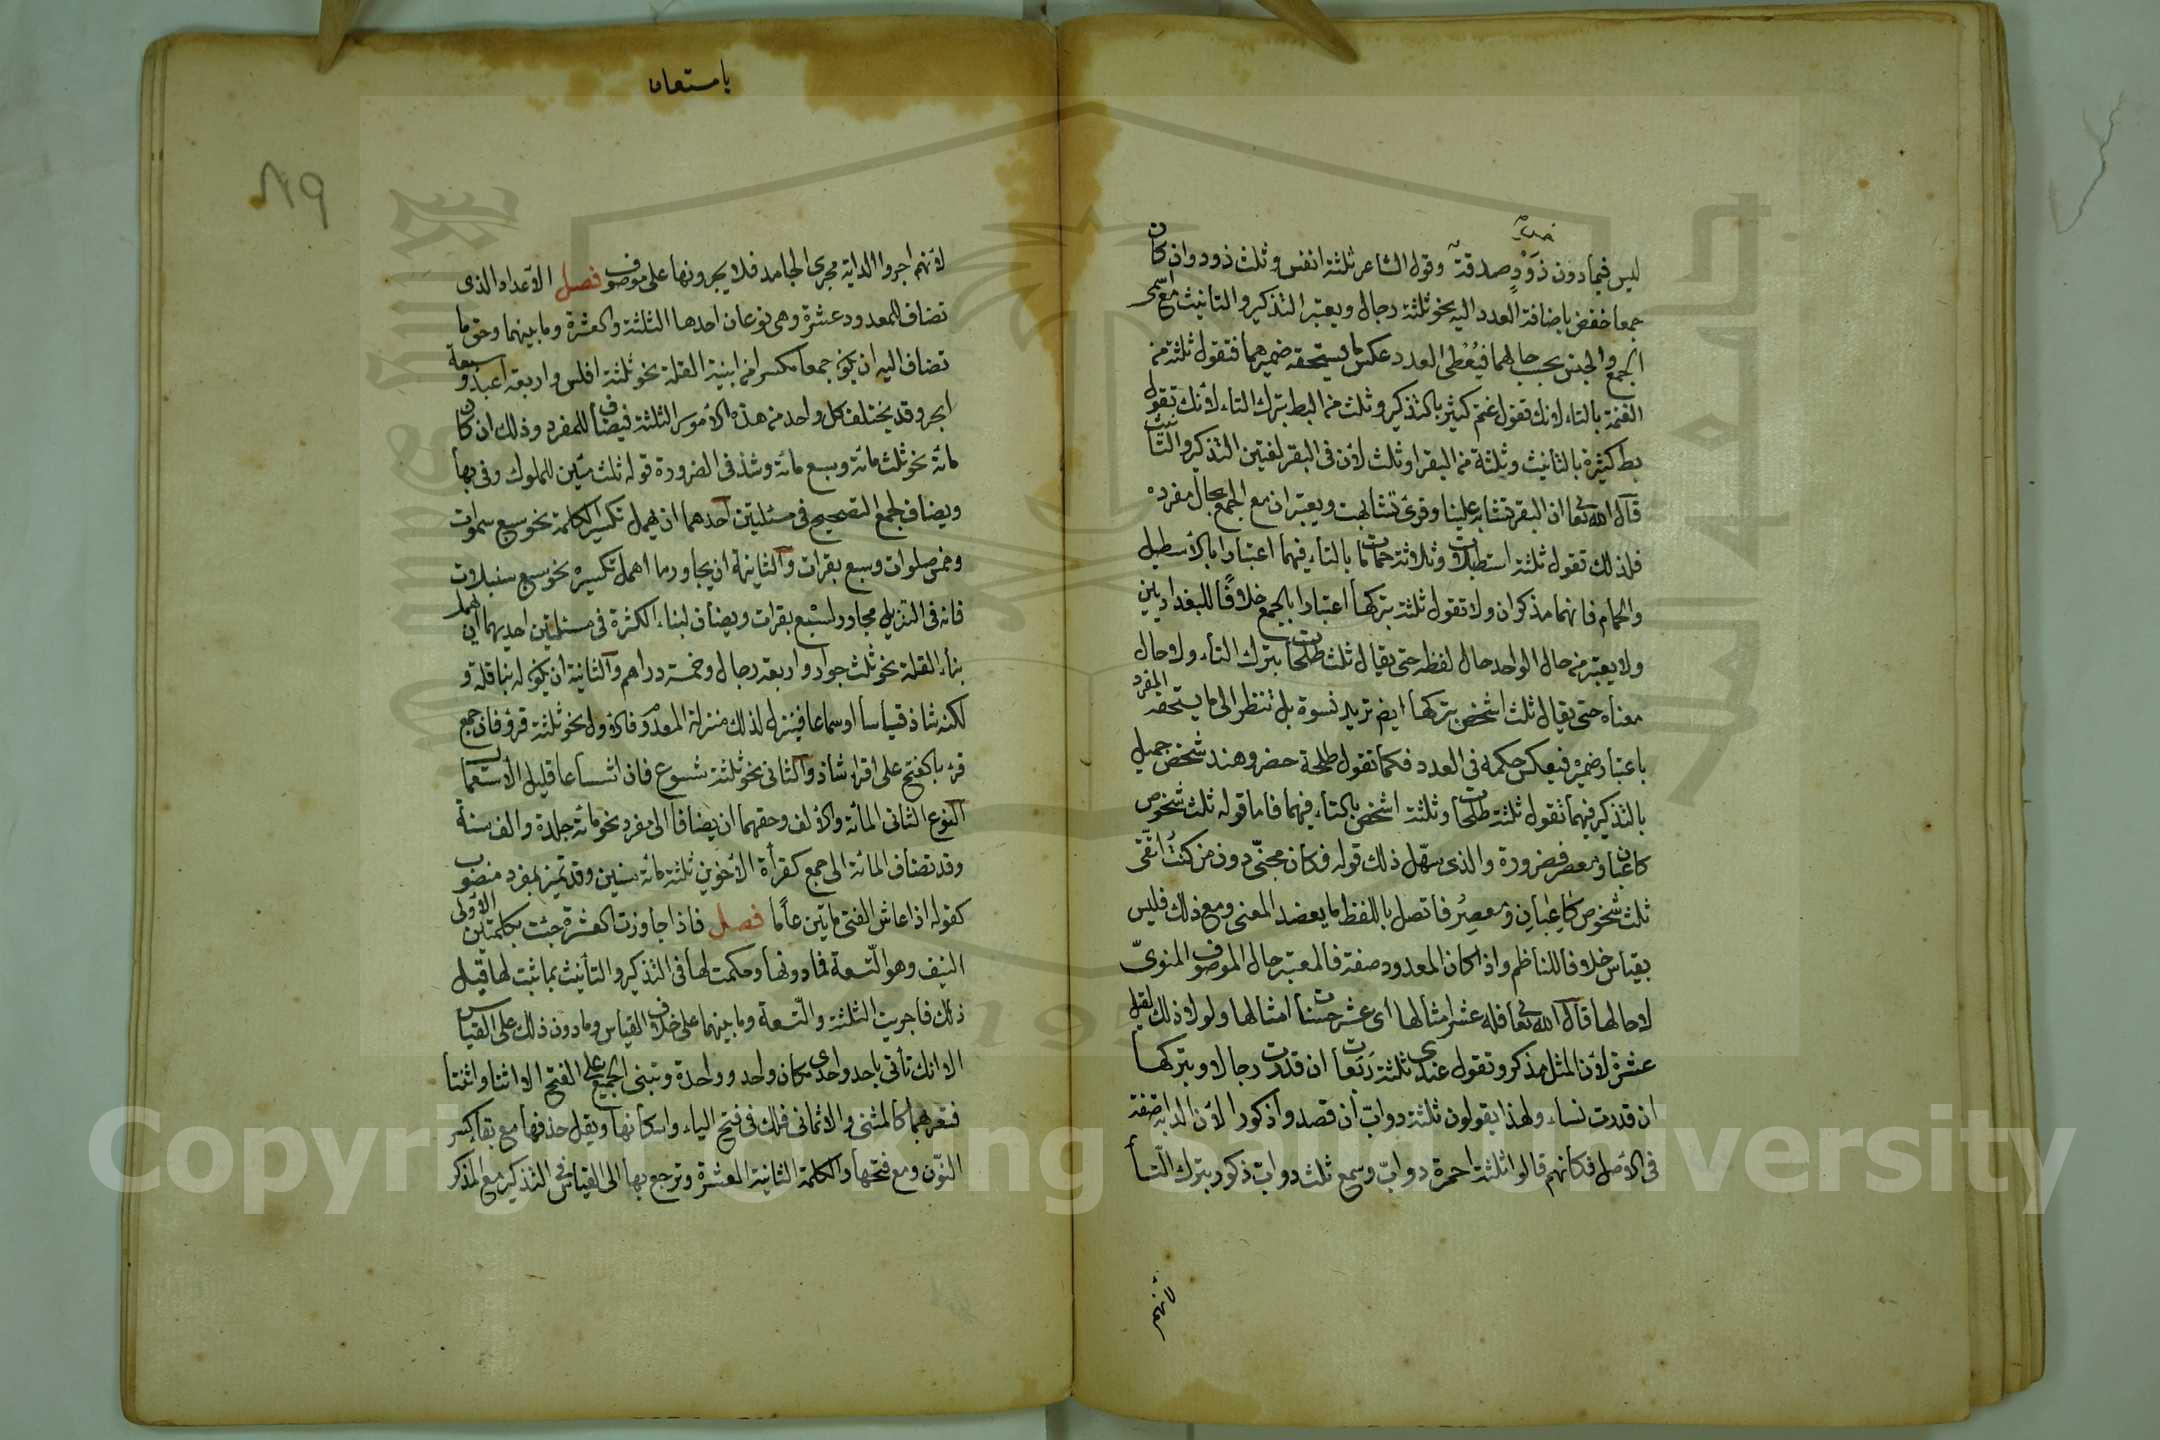 ليس فيما دون ذَوْدٍ صدقة وقول الشاعر ثلثة انفس وثلث ذود وان كان
جمعا خفض باضافة العدد اليه نحو ثلثة رجال ويعتبر التذكير والتانيث مع اسمى
الجمع والجنس بحسب حالهما فيُعْطى العدد عكس ما يستحقه ضميرهما فتقول ثلثة من
الغنم بالتاء لانك تقول غنم كثير بالتذكير وثلث من البط بترك التاء لأنك تقول
بط كثيرة بالتانيث وثلثة من البقر او ثلث لأن فى البقر لغتين التذكير والتأنيث
قال الله تعا ان البقر تشابه علينا وقرئ تشابهت ويعتبران مع الجمع بحال مفرده
فلذلك تقول ثلثة اسطبلات وثلاثة حمامات بالتاء فيهما اعتبارا بالأسطبل
والحمام فانهما مذكران ولا تقول ثلث بتركها اعتبارا بالجمع خلافًا للبغداديين
ولا يعتبر من حال الواحد حال لفظه حتى يقال ثلث طلحات بترك التاء ولا حال
معناه حتى يقال ثلث اشخص بتركها ايض تريد نسوة بل تنظر الى ما يستحقه المفرد
باعتبار ضميره فيعكس حكمه فى العدد فكما تقول طلحة حضر وهند شخص جميل
بالتذكير فيهما تقول ثلثة طلحات وثلثة اشخص بالتاء فيهما فاما قوله ثلث شخوص
كاعبان ومعصر فضرورة والذى سهّل ذلك قوله فكان مجنّى دون من كنتُ اتّقى
ثلث شخوص كاعِبانِ ومعصِرُ فاتصل باللفظ ما يعضد المعنى ومع ذلك فليس
بقياس خلافا للناظم واذا كان المعدود صفة فالمعتبر حال الموصوف المنوىّ
لا حالها قال الله تعا فله عشر امثالها اى عشر حسنات امثالها ولولا ذلك لقيل
عشرة لأن المثل مذكر وتقول عندى ثلثة رَبَعات ان قدرت رجالا وبتركها
ان قدرت نساء ولهذا يقولون ثلثة دواب أن قصدوا ذكورا لأن الدابة صفة
فى الأصل فكانهم قالوا ثلثة احمرة دوابّ وسمع ثلث دوابّ ذكور بترك التّاء
لانهم
لأنهم اجروا الدابة مجرى الجامد فلا يجرونها على موصوف فصل الأعداد الذى
تضاف للمعدود عشرة وهى نوعان احدها الثلثة والعشرة وما بينهما وحق ما
تضاف اليه ان يكون جمعا مكسرا من ابنية القلة نحو ثلثة افلس واربعة اعبد وسبعة
ابحر وقد يختلف كل واحد من هذه الأمور الثلثة فيضاف للمفرد وذلك ان كان
مائة نحو ثلث مائة وسبع مائة وشذ فى الضرورة قوله ثلث مئين للملوك وفى بها
ويضاف لجمع التصحيح فى مسئلتين احدهما ان يهمل تكسير الكلمة نحو سبع سموات
وخمس صلوات وسبع بقرات والثانية ان يجاور ما اهمل تكسيره نحو سبع سنبلات
فانه فى التنزيل مجاور لسَبْع بقرات ويضاف لبناء الكثرة فى مسئلتين احديهما ان يهمل
بناء القلة نحو ثلث جوار واربعة رجال وخمسة دراهم والثانية ان يكون له بنا قلة و
لكنه شاذ قياسا او سماعا فينزل لذلك منزلة المعدوم فالاول نحو ثلثة قروء فان جمع
قرء بالفتح على اقراء شاذ والثانى نحو ثلثة شسوع فان اشساعا قليل الأستعمال
النوع الثانى المائة والألف وحقهما ان يضافا الى مفرد نحو مائة جلدة والف سنة
وقد تضاف المائة الى جمع كقرأة الأخوين ثلثة مائة سنين وقد تميز بمفرد منصوب
كقوله اذا عاش الفتى مايتين عامًا فصل فاذا جاوزت العشرة جئت بكلمتين الأولى
النيف وهو التّسعة فما دونها وحكمت لها فى التذكير والتأنيث بما ثبت لها قيل
ذلك فاجريت الثلثة والتّسعة وما بينهما على خلاف القياس وما دون ذلك على القياس
الا انك تأتى باحد واحدى مكان واحد وواحدة وتبنى الجميع على الفتح الا اثنا واثنتا
فتعربهما كالمثنى والا ثمانى فلك فى فتح الياء واسكانها ويقل حذفها مع بقاء كسر
النّون ومع فتحها والكلمة الثانية العشرة وترجع بها الى القياس فى التذكير مع المذكر
٨٩
Copyright © King Saud University
1957